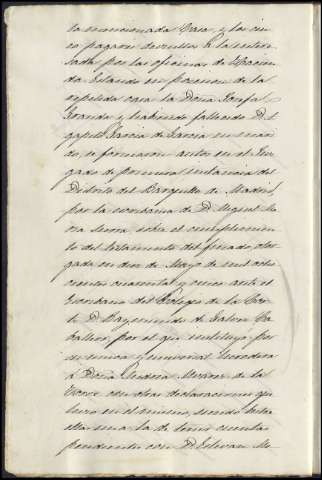 la mencionada Casa, y los cin
co pagarés devueltos á la intere
sada por las oficinas de Hacien
da. Estando en posesion de la
repetida casa la Doña Josefa
Granda y habiendo fallecido D. A
gapito Garcia de Garcia su mari
do, se formaron autos en el Juz
gado de primera instancia del
Distrito del Barquillo de Madrid,
por la escribanía de D. Miguel
sobre el cumplimien
to del testamento del finado otor
gado en dos de Mayo de mil ocho
cientos cuarenta y nueve ante el
Escribano del Colegio de la Cor
te D. Raymundo de Galvez Ca
ballero, por el que instituyó por
su única y universal heredera
á Doña de la
Torre con otras declaraciones que
hizo en el mismo, siendo entre
ellas una la de tener cuentas
pendientes con D. Estevan